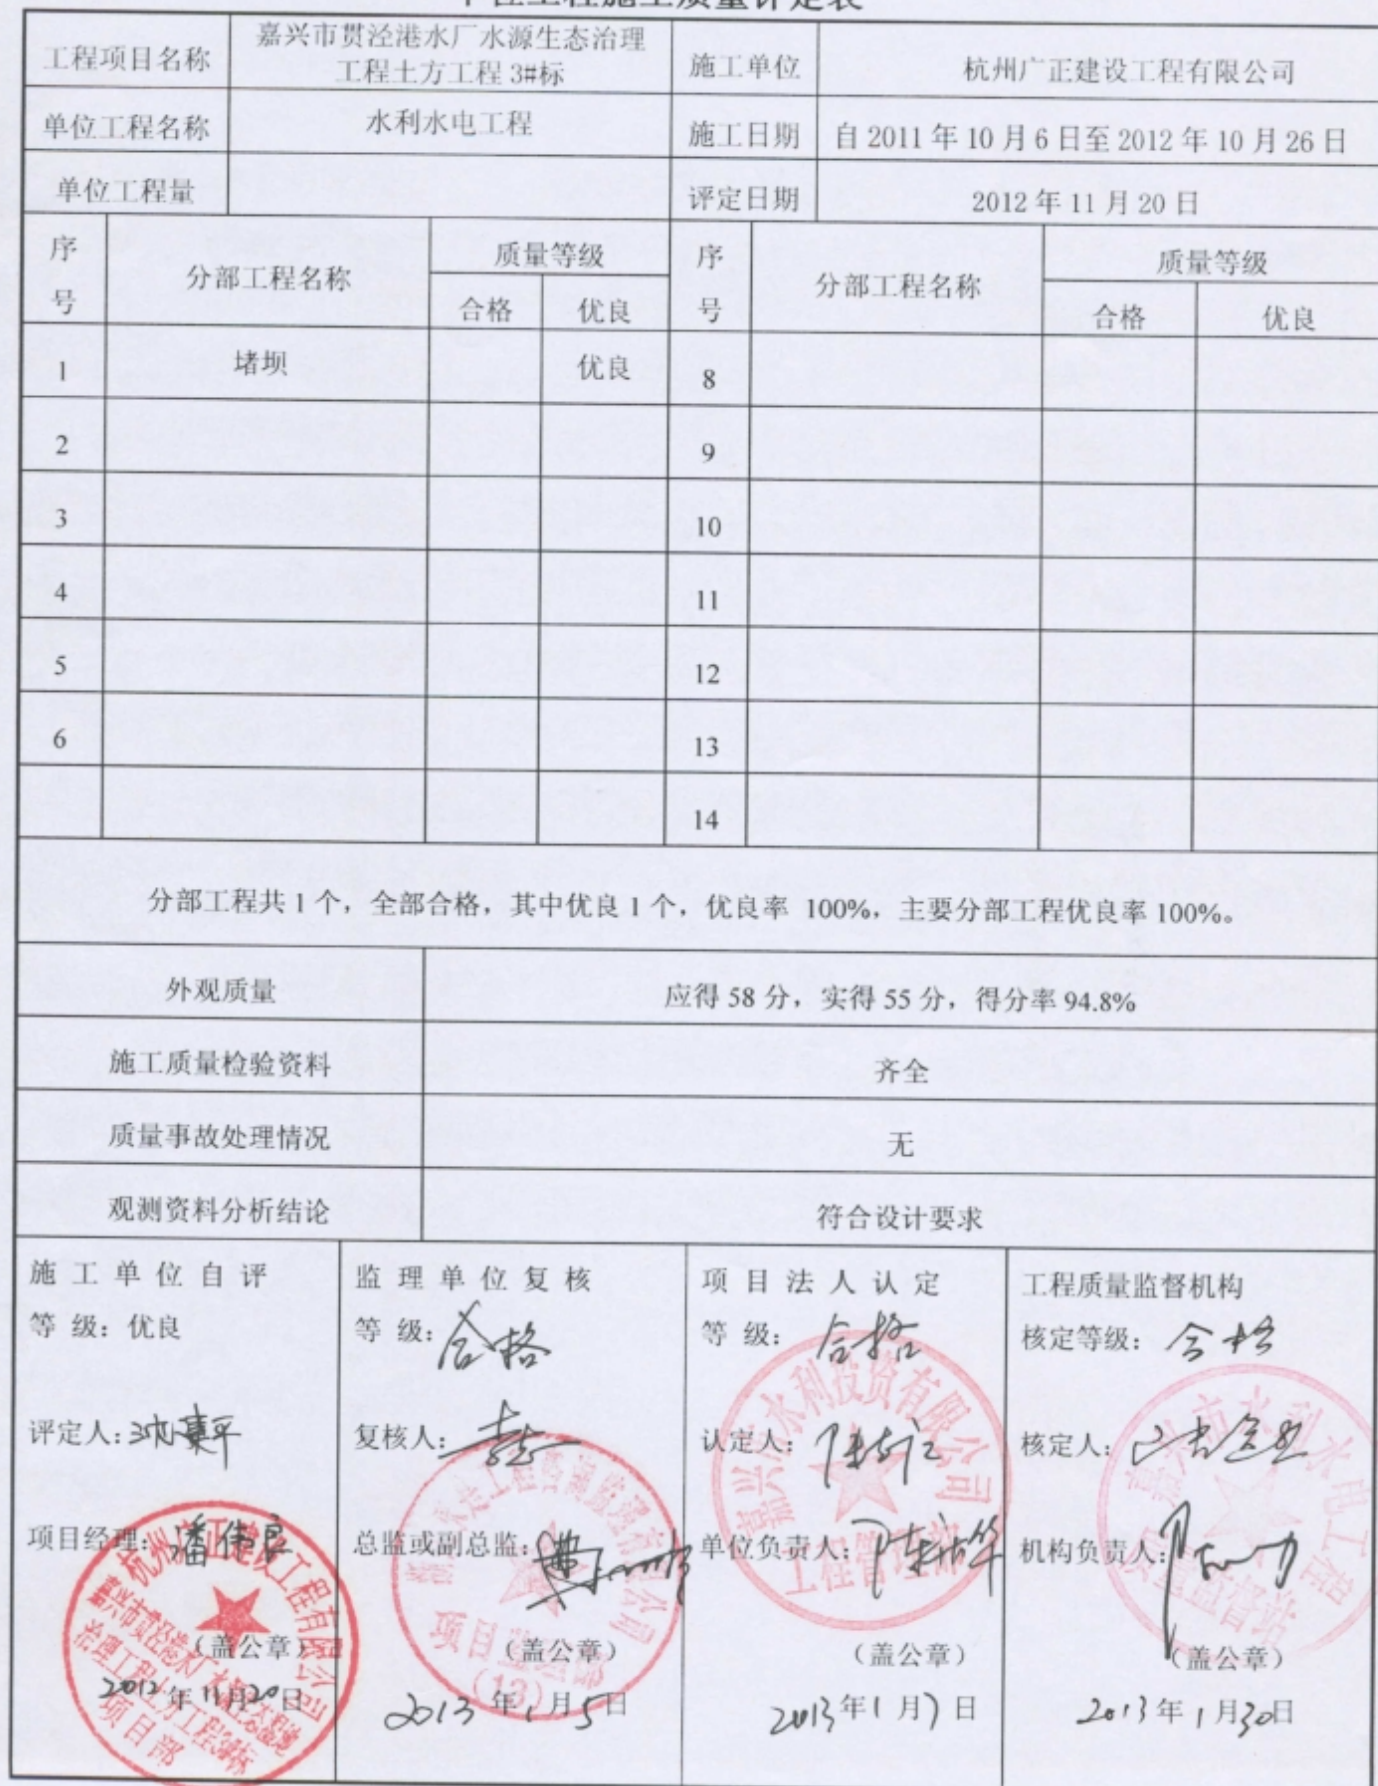 单位工程施工质量评定表
工程项目名称 嘉兴市贯泾港水厂水源生态治理
工程土方工程 3#标 施工单位 杭州广正建设工程有限公司
单位工程名称 水利水电工程 施工日期 自 2011 年 10 月 6 日至 2012 年 10 月 26 日
单位工程量 评定日期 2012 年 11 月 20 日
序号 分部工程名称 质量等级 序号 分部工程名称 质量等级
合格 优良 合格 优良
1 堵坝 优良 8
2 9
3 10
4 11
5 12
6 13
14
分部工程共 1 个，全部合格，其中优良 1 个，优良率 100%，主要分部工程优良率 100%。
外观质量 应得 58 分，实得 55 分，得分率 94.8%
施工质量检验资料 齐全
质量事故处理情况 无
观测资料分析结论 符合设计要求
施工单位自评
等 级：优良
评定人：
项目经理：潘伟良
（盖公章）
2012年11月20日
杭州广正建设工程有限公司
项目部
监理单位复核
等 级：合格
复核人：
总监或副总监：
（盖公章）
2013年1月5日
(13)
项目法人认定
等 级：合格
认定人：
单位负责人：
（盖公章）
2013年1月7日
嘉兴水利投资有限公司
工程管理部
工程质量监督机构
核定等级：合格
核定人：
机构负责人：
（盖公章）
2013年1月30日
嘉兴市水利水电工程
质量监督站